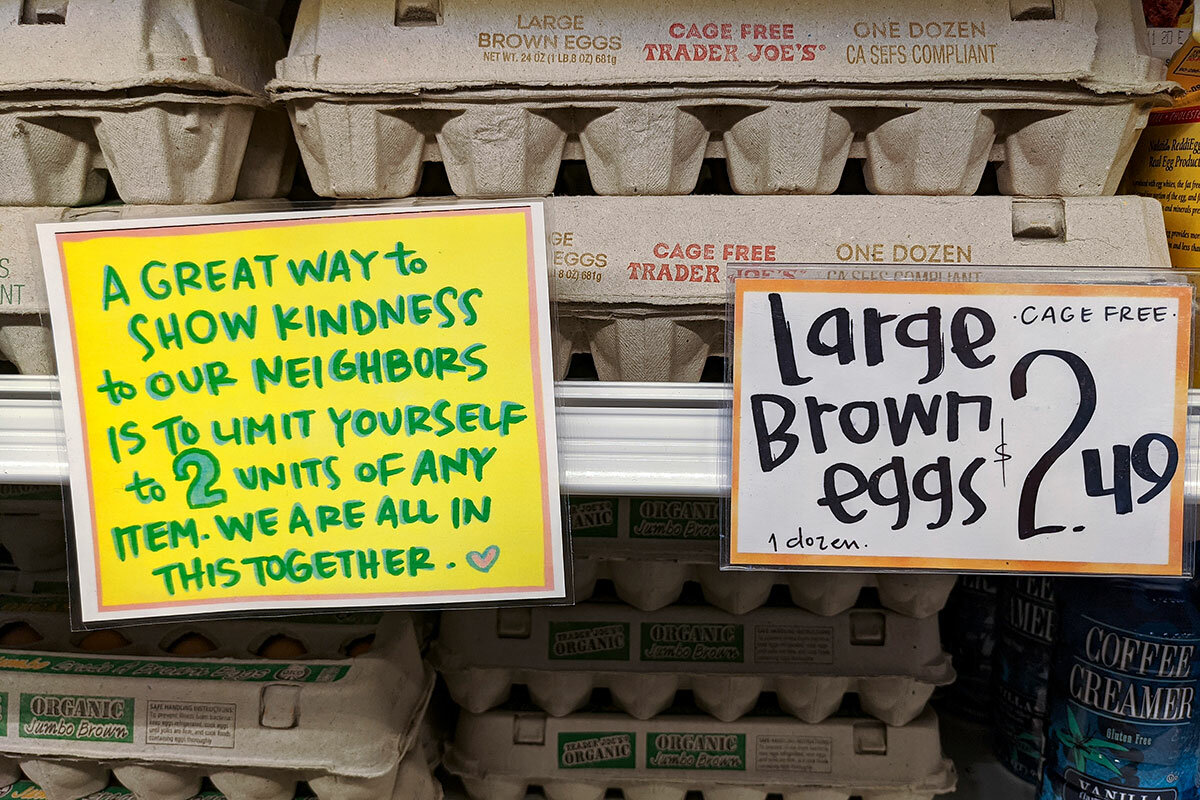 LARGE
BROWN EGGS
NET WT. 24 OZ (1 LB.8 OZ) 681g
CAGE FREE
TRADER JOE'S
ONE DOZEN
CA SEFS COMPLIANT
EGGS
681g
CAGE FREE
TRADER JOE'S
ONE DOZEN
CA SEFS COMPLIANT
A GREAT WAY to
SHOW KINDNESS
to OUR NEIGHBORS
IS TO LIMIT YOURSELF
to 2 UNITS OF ANY
ITEM. WE ARE ALL IN
THIS TOGETHER.
Large
Brown
eggs
1 dozen.
·CAGE FREE·
$2.49
Real Egg Product
ORGANIC
Jumbo Brown
TRADER JOE'S
ORGANIC
ORGANIC
Jumbo Brown
SAFE HANDLING INSTRUCTIONS
ORGANIC
Jumbo Brown
SAFE HANDLING INSTRUCTIONS
TRADER JOE'S
ORGANIC
ORGANIC
Jumbo Brown
SAFE HANDLING INSTRUCTIONS
COFFEE
CREAMER
Gluten Free
VANILLA